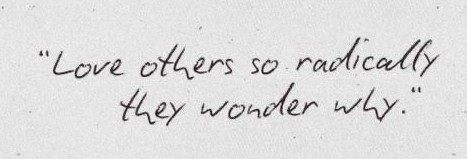 "Love others so radically
they wonder why."